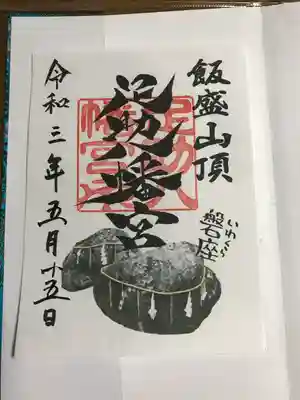 飯盛山頂
磐座
いわくら
足助八幡宮
足助八幡宮
令和三年五月十五日